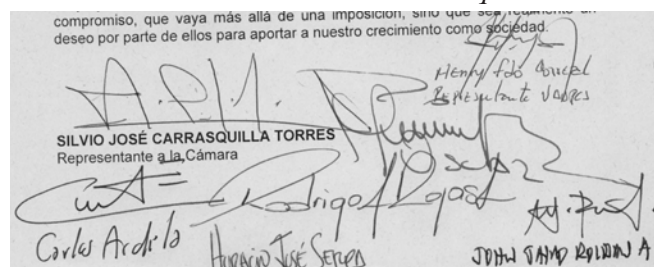 compromiso, que vaya más allá de una imposición, sino que sea realmente un
deseo por parte de ellos para aportar a nuestro crecimiento como sociedad.
Henry Fdo
Representante
SILVIO JOSÉ CARRASQUILLA TORRES
Representante a la Cámara
Rodrigo Rojas
Carlos Ardila
HORACIO JOSÉ SERPA
JOHN DAVID ROLDAN A